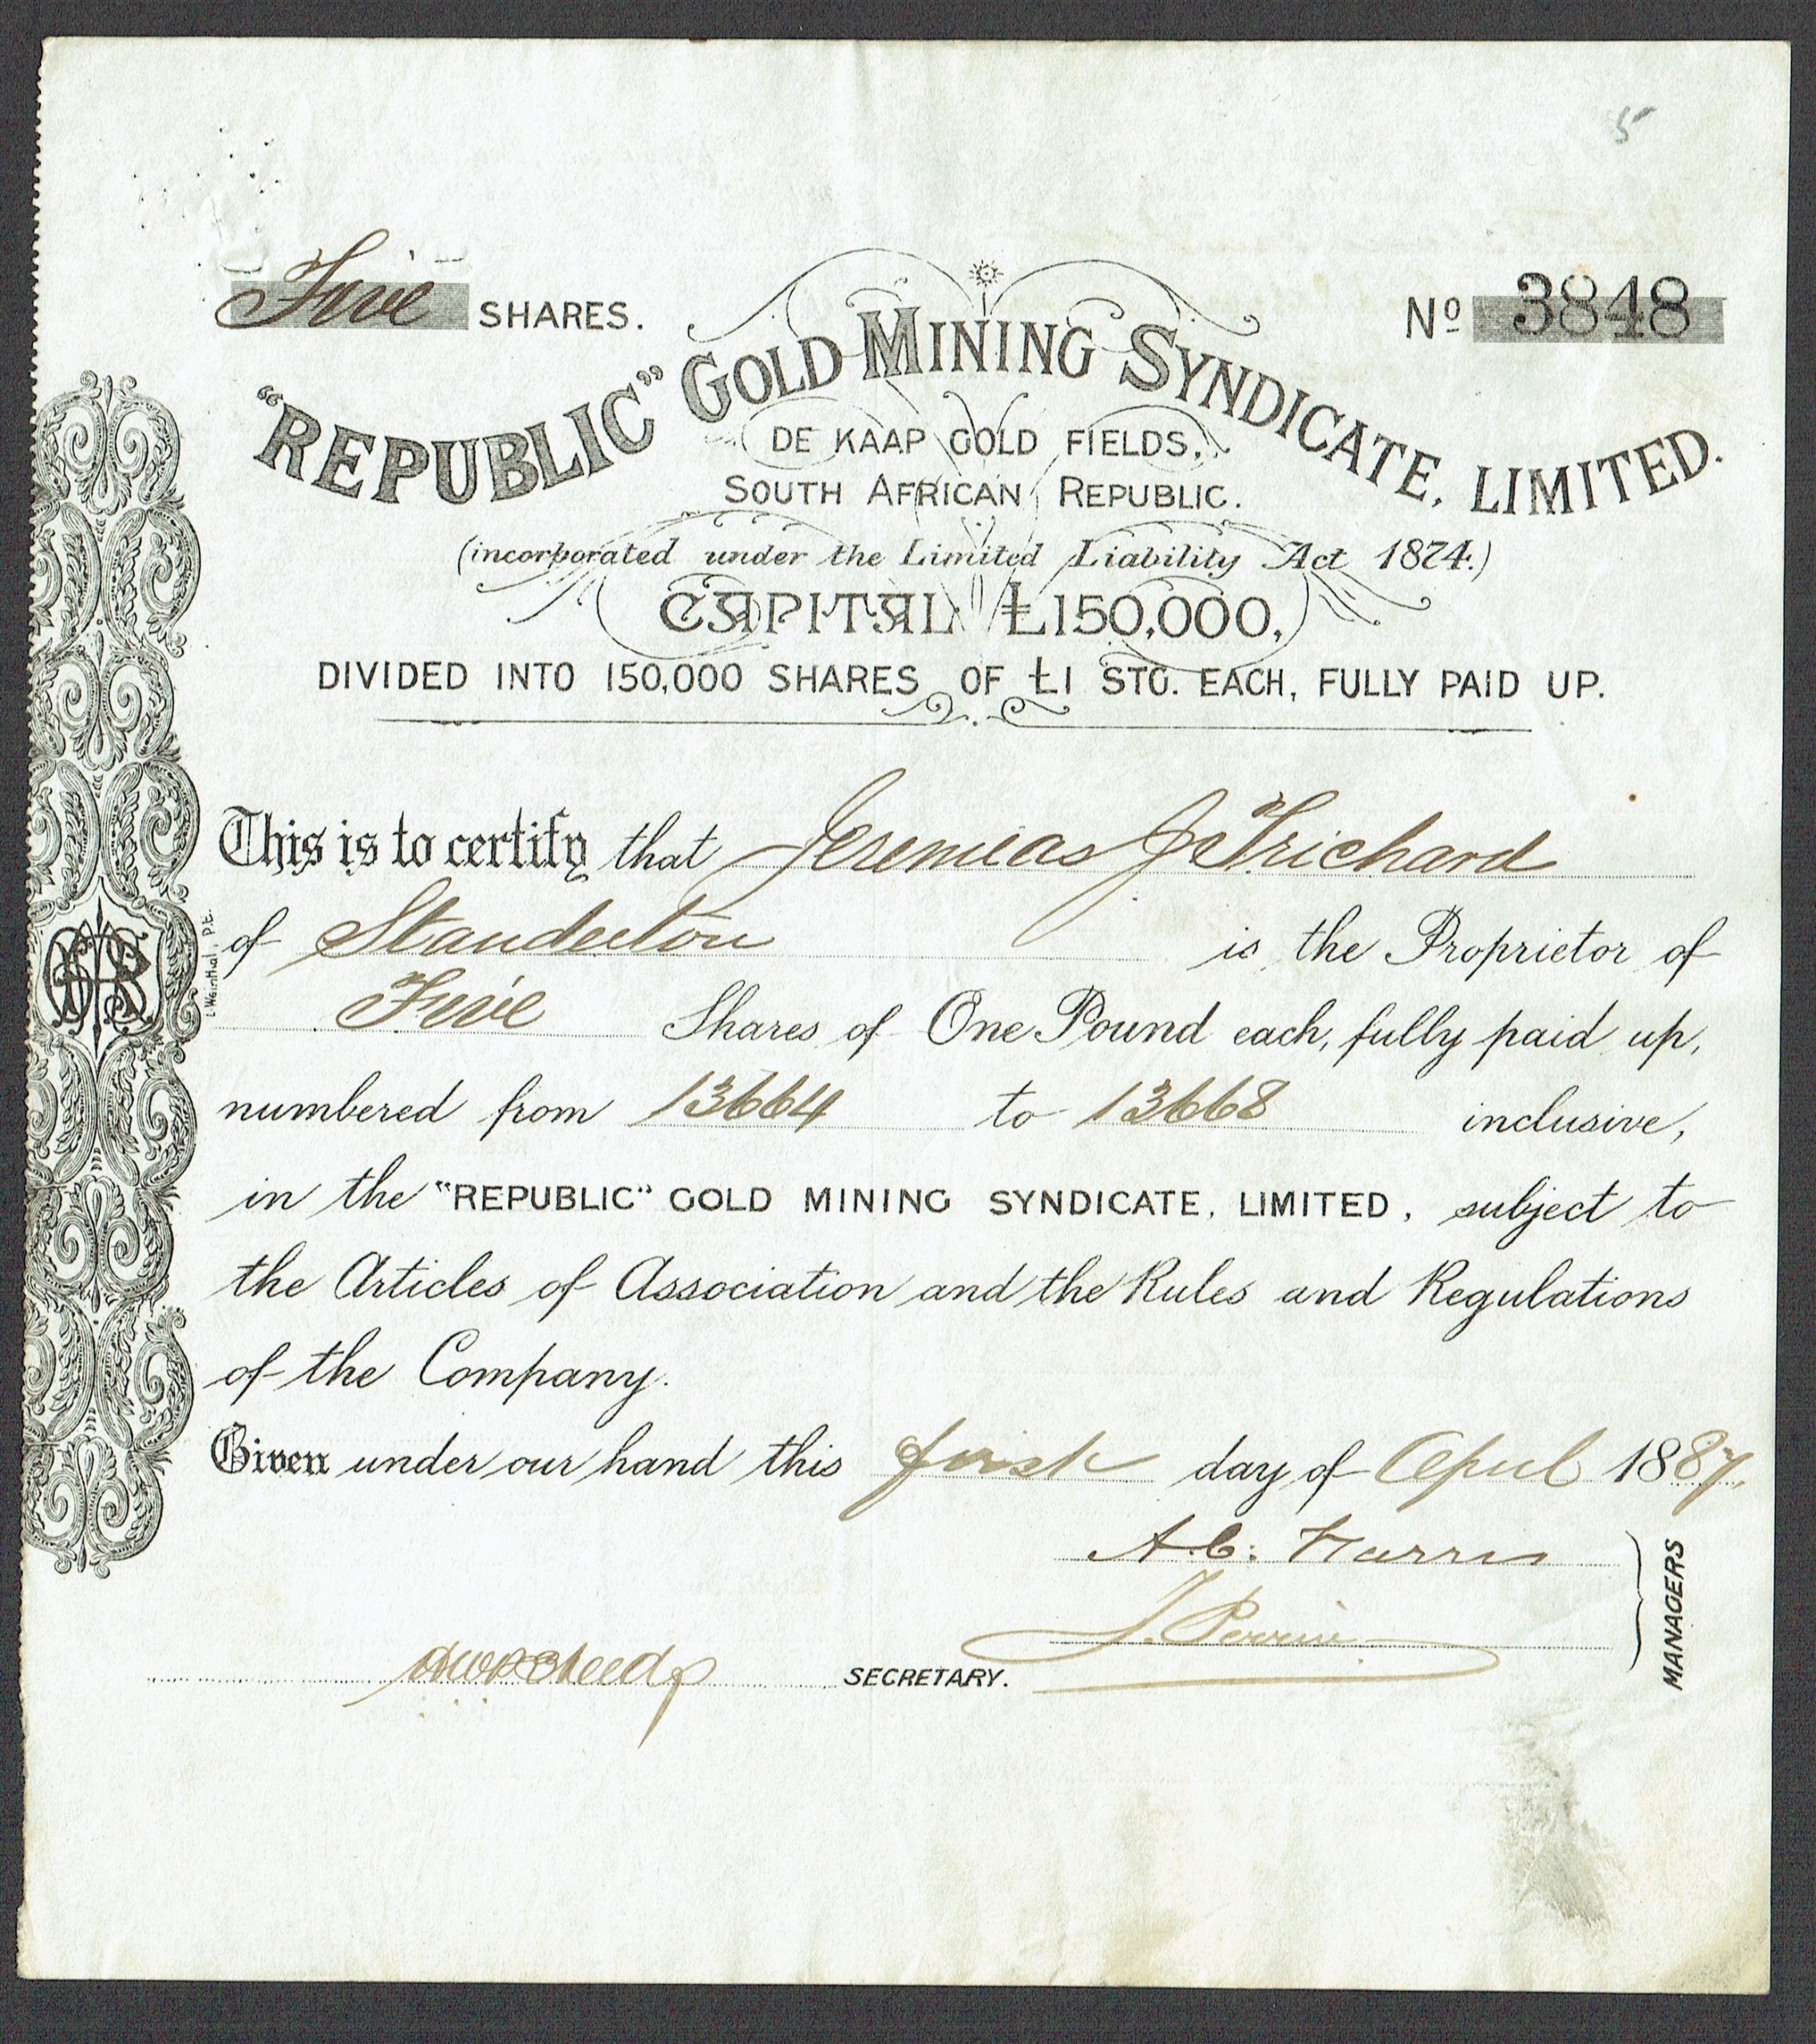 5
Five SHARES.
Nº 3848
"REPUBLIC" GOLD MINING SYNDICATE, LIMITED.
DE KAAP GOLD FIELDS,
SOUTH AFRICAN REPUBLIC.
(incorporated under the Limited Liability Act 1874.)
CAPITAL £150,000,
DIVIDED INTO 150,000 SHARES OF £1 STG. EACH, FULLY PAID UP.
This is to certify that Jeremias J Trichard
of Standerton is the Proprietor of
Five Shares of One Pound each, fully paid up,
numbered from 13664 to 13668 inclusive,
in the "REPUBLIC" GOLD MINING SYNDICATE, LIMITED, subject to
the Articles of Association and the Rules and Regulations
of the Company.
Given under our hand this first day of April 1887.
A.C. Harris
J. Perrin
MANAGERS
SECRETARY.
L. Weinthal, P.E.